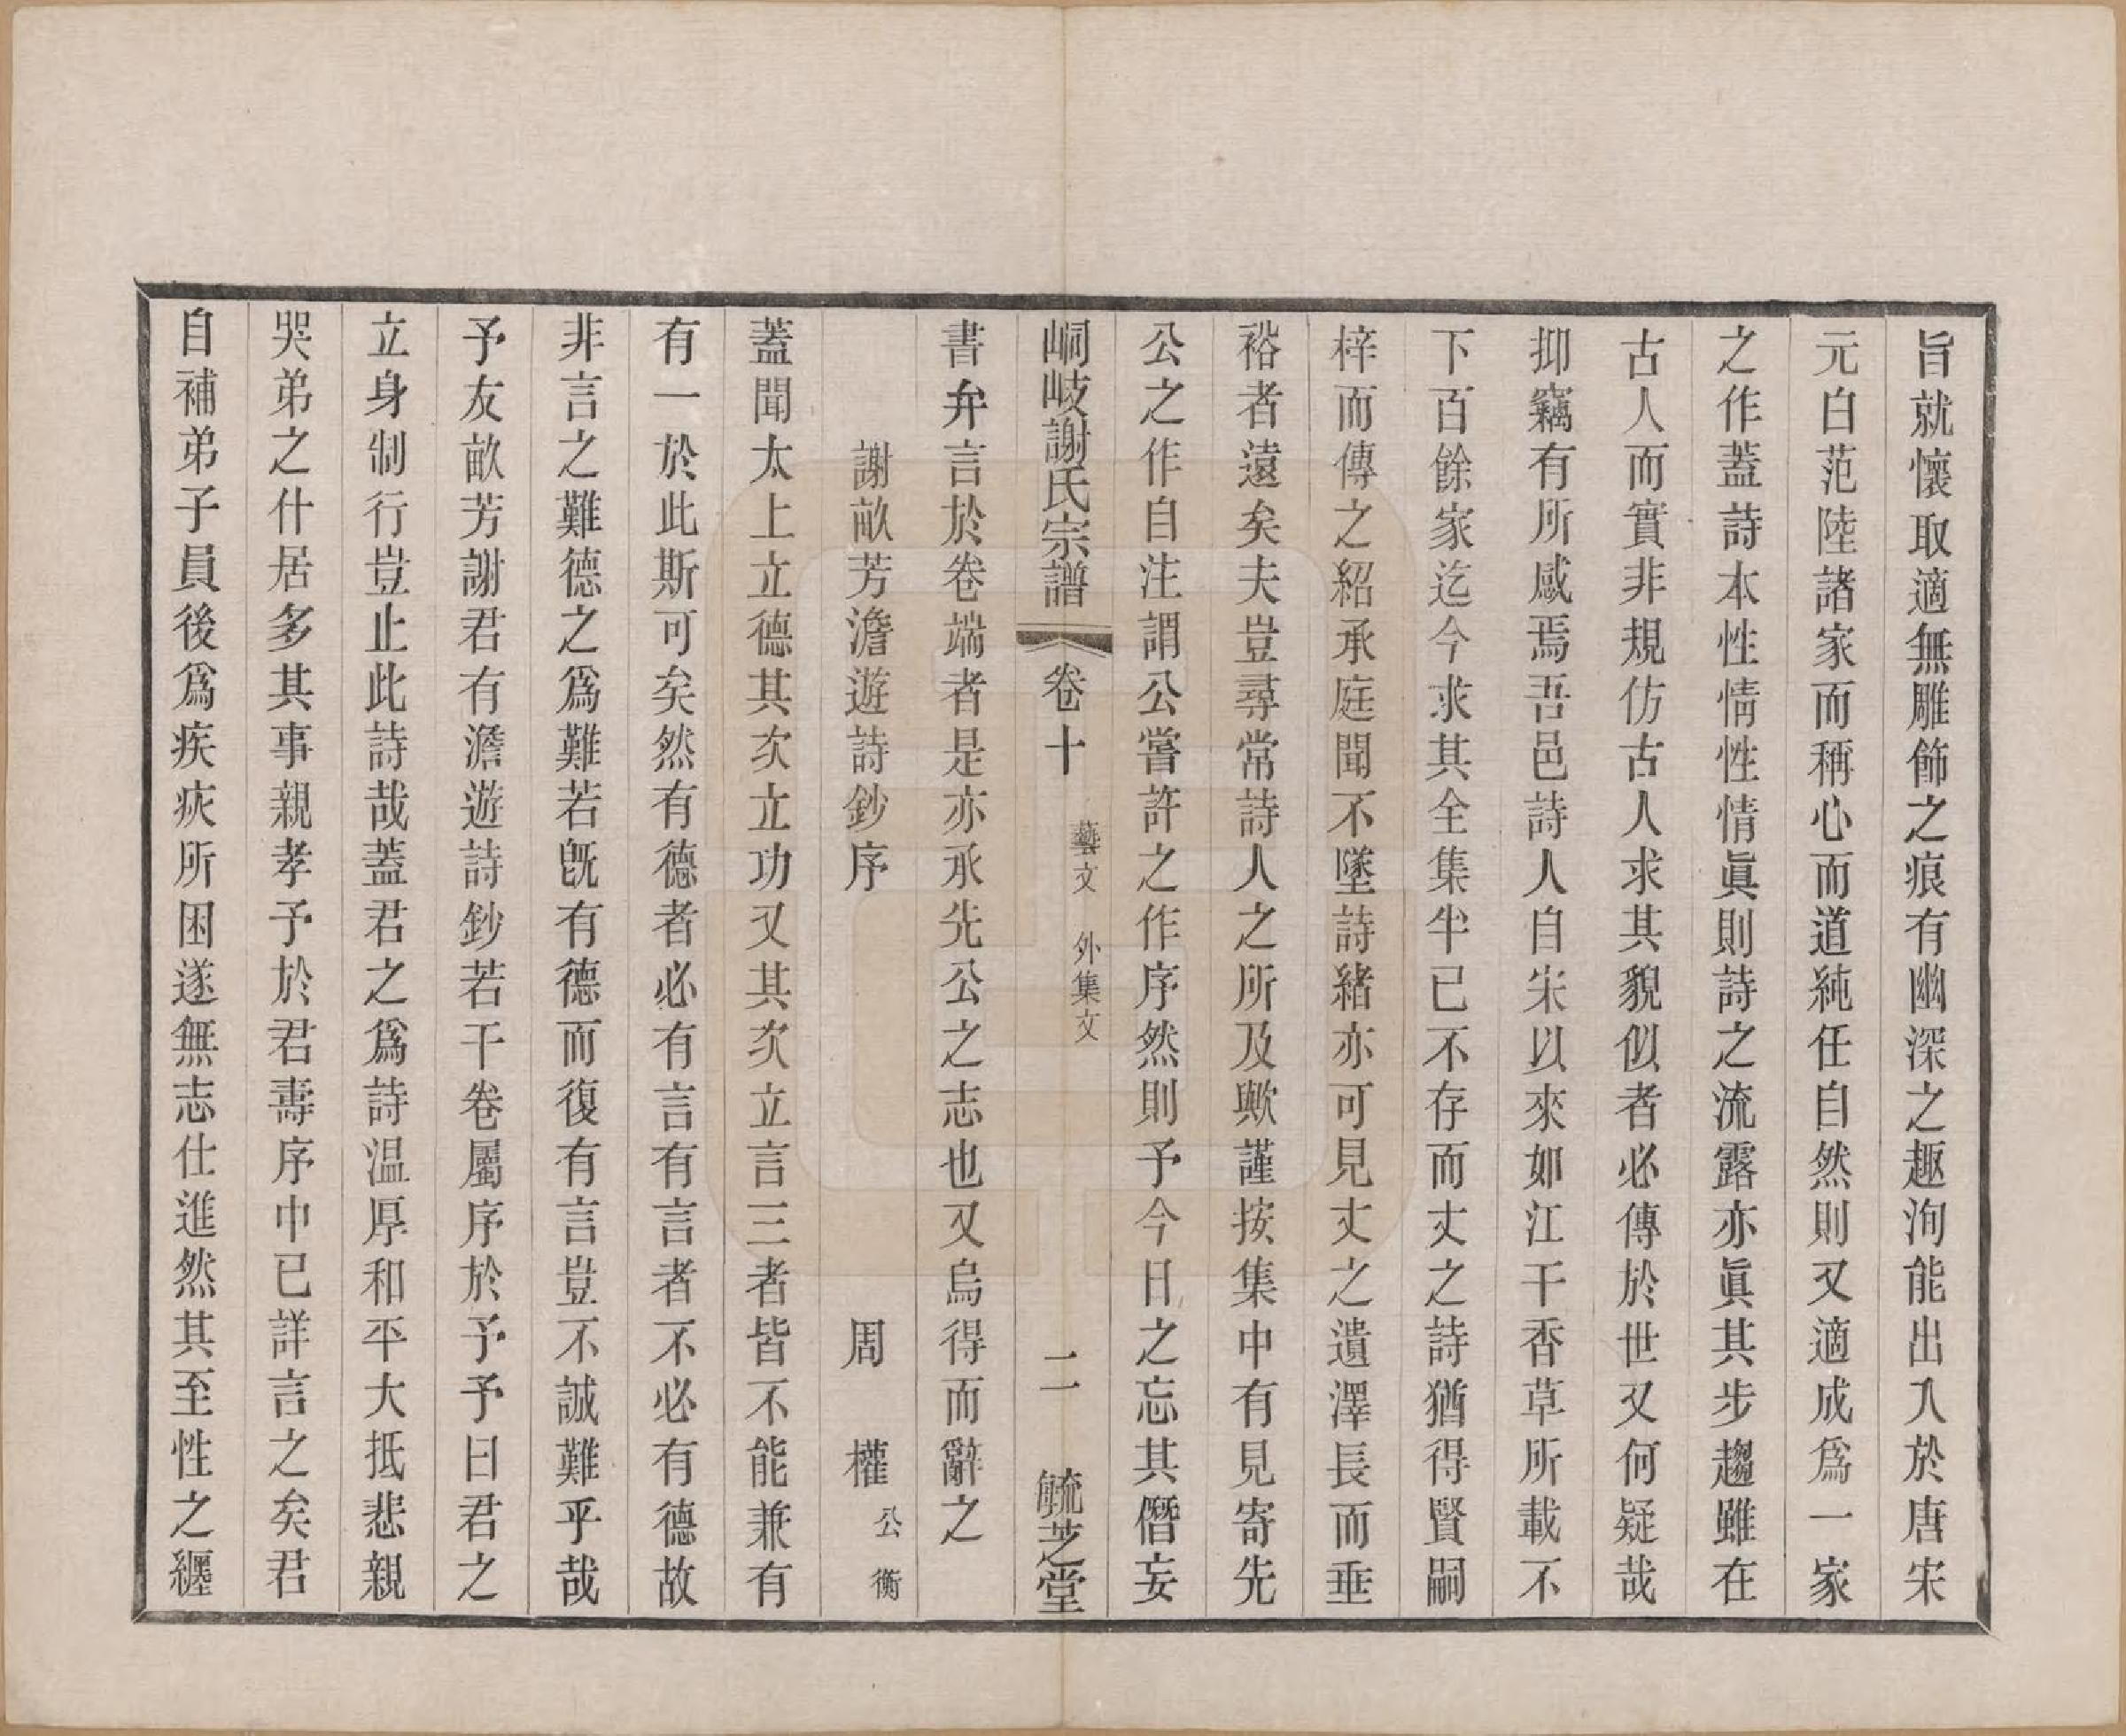 旨就懷取適無雕飾之痕有幽深之趣洵能出入於唐宋
元白范陸諸家而稱心而道純任自然則又適成爲一家
之作蓋詩本性情性情眞則詩之流露亦眞其步趨雖在
古人而實非規仿古人求其貌似者必傳於世又何疑哉
抑竊有所感焉吾邑詩人自宋以來如江干香草所載不
下百餘家迄今求其全集半已不存而丈之詩猶得賢嗣
梓而傳之紹承庭聞不墜詩緖亦可見丈之遺澤長而垂
裕者遠矣夫豈尋常詩人之所及歟謹按集中有見寄先
公之作自注謂公嘗許之作序然則予今日之忘其僭妄
峒岐謝氏宗譜 卷十 藝文 外集文 二 毓芝堂
書弁言於卷端者是亦承先公之志也又烏得而辭之
謝畝芳澹遊詩鈔序 周權公衡
蓋聞太上立德其次立功又其次立言三者皆不能兼有
有一於此斯可矣然有德者必有言有言者不必有德故
非言之難德之爲難若旣有德而復有言豈不誠難乎哉
予友畝芳謝君有澹遊詩鈔若干卷屬序於予予曰君之
立身制行豈止此詩哉蓋君之爲詩温厚和平大抵悲親
哭弟之什居多其事親孝予於君壽序中已詳言之矣君
自補弟子員後爲疾疢所困遂無志仕進然其至性之纒